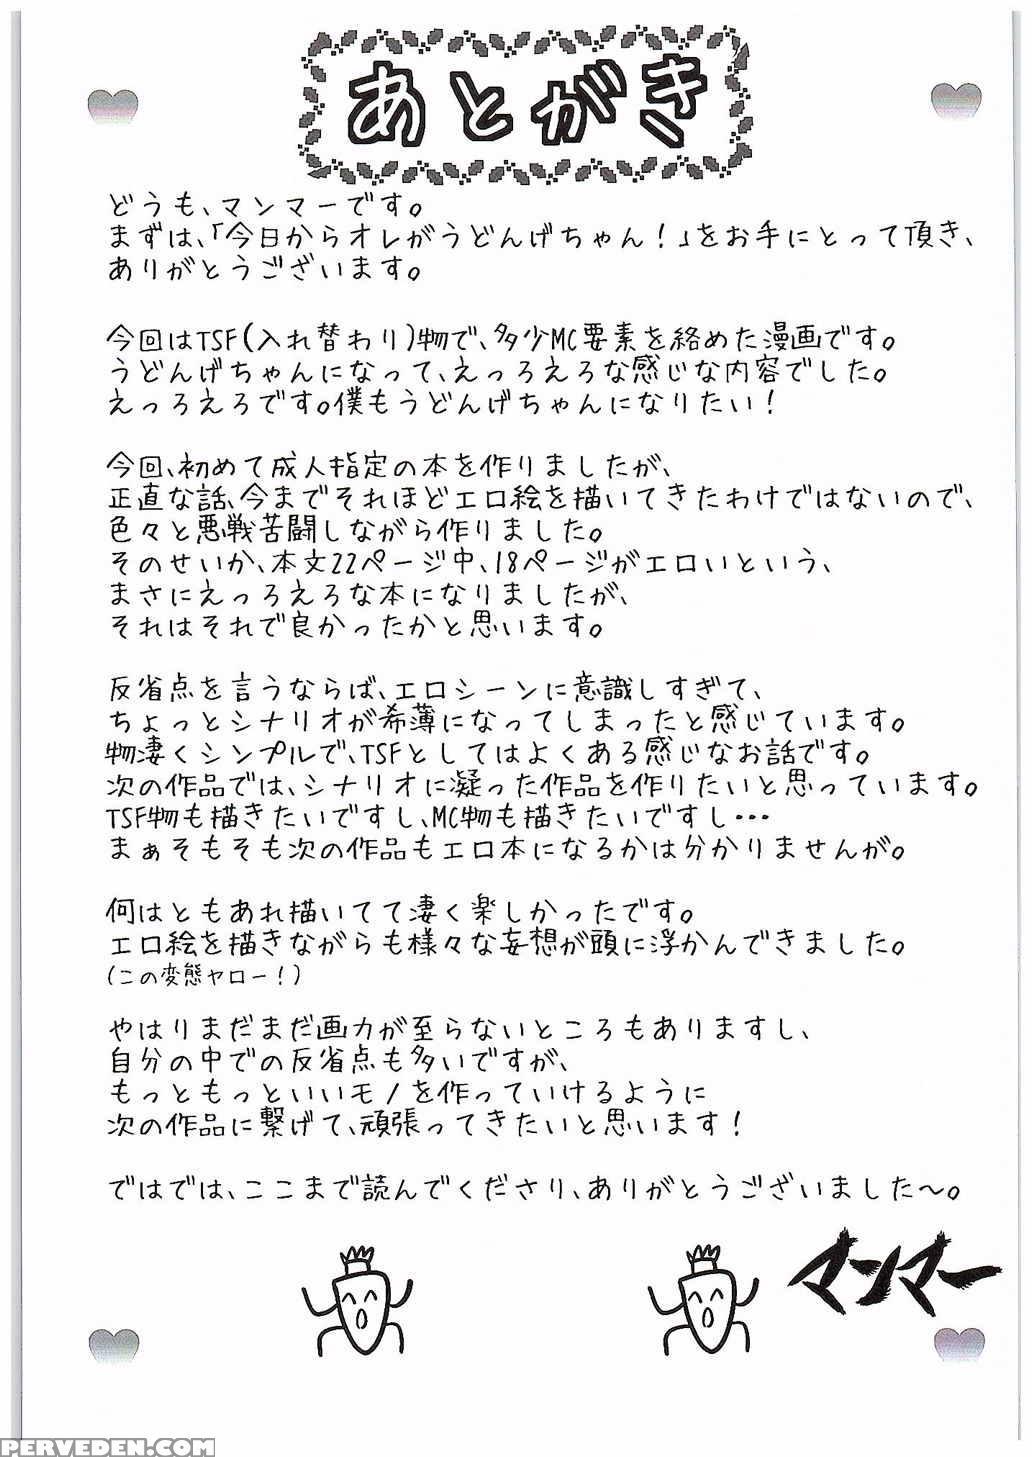 あとがき
どうも、マンマーです。
まずは、「今日からオレがうどんげちゃん！」をお手にとって頂き、
ありがとうございます。
今回はTSF(入れ替わり)物で、多少MC要素を絡めた漫画です。
うどんげちゃんになって、えっろえろな感じな内容でした。
えっろえろです。僕もうどんげちゃんになりたい！
今回、初めて成人指定の本を作りましたが、
正直な話、今までそれほどエロ絵を描いてきたわけではないので、
色々と悪戦苦闘しながら作りました。
そのせいか、本文22ページ中、18ページがエロいという、
まさにえっろえろな本になりましたが、
それはそれで良かったかと思います。
反省点を言うならば、エロシーンに意識しすぎて、
ちょっとシナリオが希薄になってしまったと感じています。
物凄くシンプルで、TSFとしてはよくある感じなお話です。
次の作品では、シナリオに凝った作品を作りたいと思っています。
TSF物も描きたいですし、MC物も描きたいですし・・・
まぁそもそも次の作品もエロ本になるかは分かりませんが。
何はともあれ描いてて凄く楽しかったです。
エロ絵を描きながらも様々な妄想が頭に浮かんできました。
(この変態ヤロー！)
やはりまだまだ画力が至らないところもありますし、
自分の中での反省点も多いですが、
もっともっといいモノを作っていけるように
次の作品に繋げて、頑張ってきたいと思います！
ではでは、ここまで読んでくださり、ありがとうございました〜。
マンマー
PERVEDEN.COM